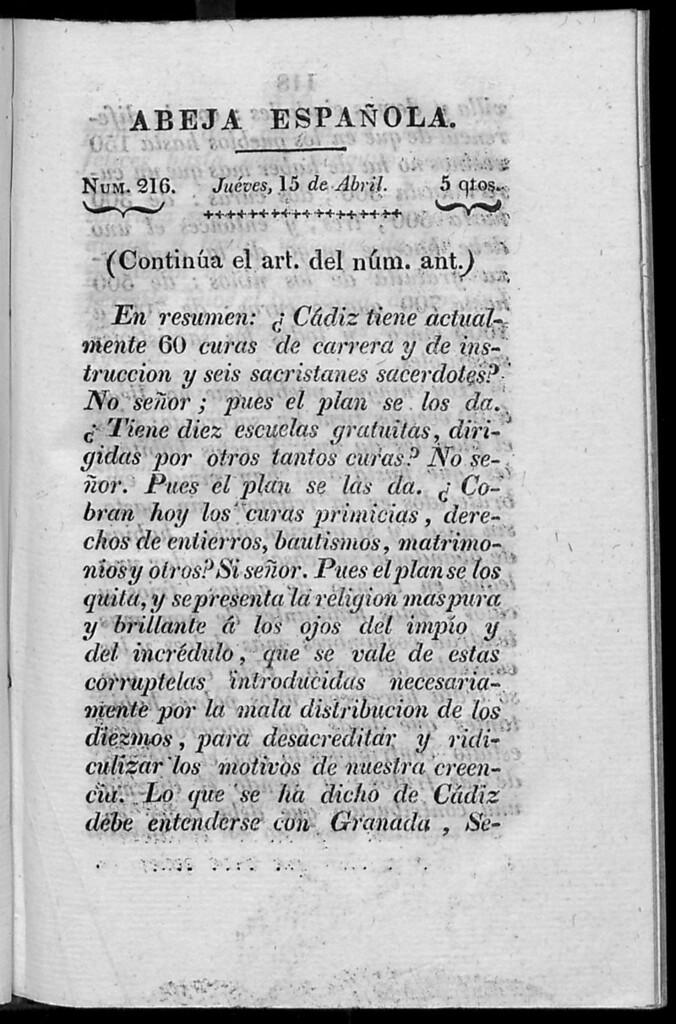 ABEJA ESPAÑOLA.
NUM. 216. Juéves, 15 de Abril. 5 qtos.
(Continúa el art. del núm. ant.)
En resumen: ¿ Cádiz tiene actual-
mente 60 curas de carrera y de ins-
truccion y seis sacristanes sacerdotes?
No señor ; pues el plan se los da.
¿ Tiene diez escuelas gratuitas, diri-
gidas por otros tantos curas? No se-
ñor. Pues el plan se las da. ¿ Co-
bran hoy los curas primicias, dere-
chos de entierros, bautismos, matrimo-
nios y otros? Si señor. Pues el plan se los
quita, y se presenta la religion mas pura
y brillante á los ojos del impío y
del incrédulo, que se vale de estas
corruptelas introducidas necesaria-
mente por la mala distribucion de los
diezmos, para desacreditar y ridi-
culizar los motivos de nuestra creen-
cia. Lo que se ha dicho de Cádiz
debe entenderse con Granada, Se-